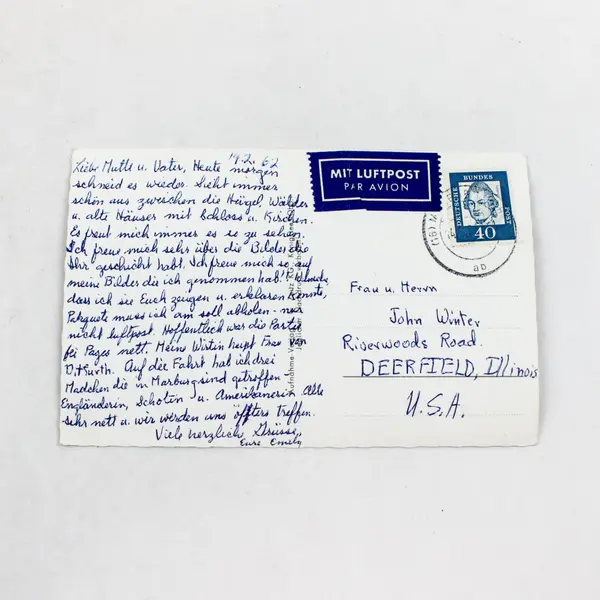 19.2.62
Liebe Mutti u. Vater, Heute morgen
schneid es wieder. Sieht immer
schön aus zwischen die Hügel, Wälder
u. alte Häuser mit Schloss u. Kirchen.
Es freut mich immer es so zu sehen.
Ich freue mich sehr über die Bilder die
Ihr geschickt habt. Ich freue mich so auf
meine Bilder die ich genommen hab!
dass ich sie Euch zeugen u. erklären könnte,
muss ich am soll abholen - nur
nicht luftpost. Hoffentlich war die Partie
bei Pages nett. Meine Wirtin Frau von
Auf die Fahrt hab ich drei
Mädchen die in Marburg sind getroffen
Engländerin, Schotin u. Amerikanerin. Alle
sehr nett u. wir werden uns öfters treffen.
Viele herzliche Grüsse,
Eure Emily
MIT LUFTPOST
PAR AVION
DEUTSCHE BUNDESPOST
40
(16) M
ab
Frau u. Herrn
John Winter
Riverwoods Road.
DEERFIELD, Illinois
U.S.A.